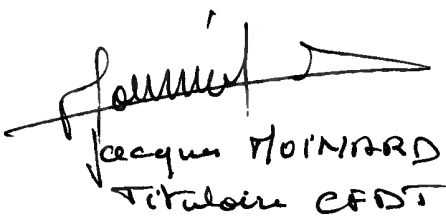 Jacques MOINARD
Titulaire CFDT